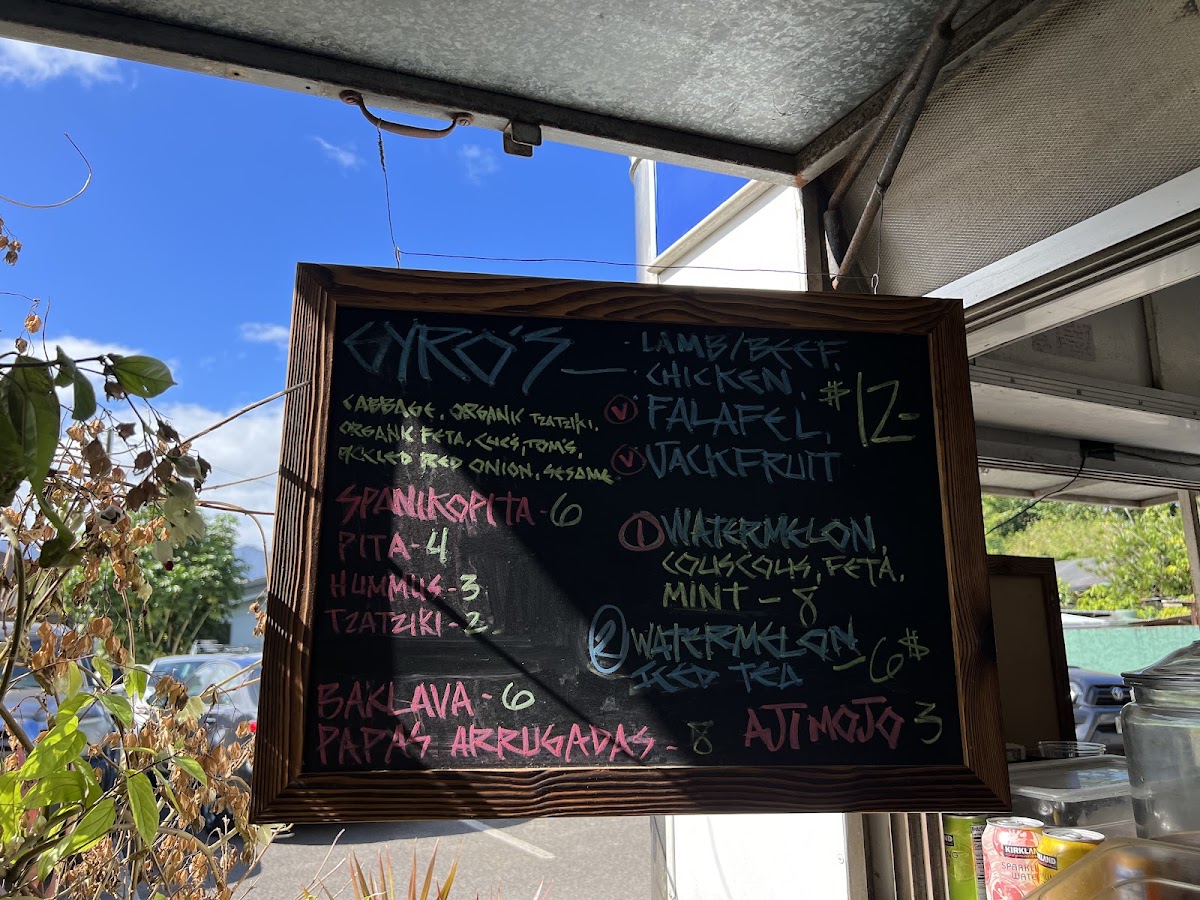 GYRO'S — · LAMB/BEEF,
CHICKEN,
V FALAFEL, $12-
V JACKFRUIT
CABBAGE, ORGANIC TZATZIKI,
ORGANIC FETA, CUCS, TOM'S,
PICKLED RED ONION, SESAME
SPANIKOPITA - 6
PITA - 4
HUMMUS - 3
TZATZIKI - 2
BAKLAVA - 6
PAPAS ARRUGADAS - 8
1 WATERMELON,
COUSCOUS, FETA,
MINT - 8
2 WATERMELON
ICED TEA - 6$
AJI MOJO 3
KIRKLAND
SPARKLING
WATER